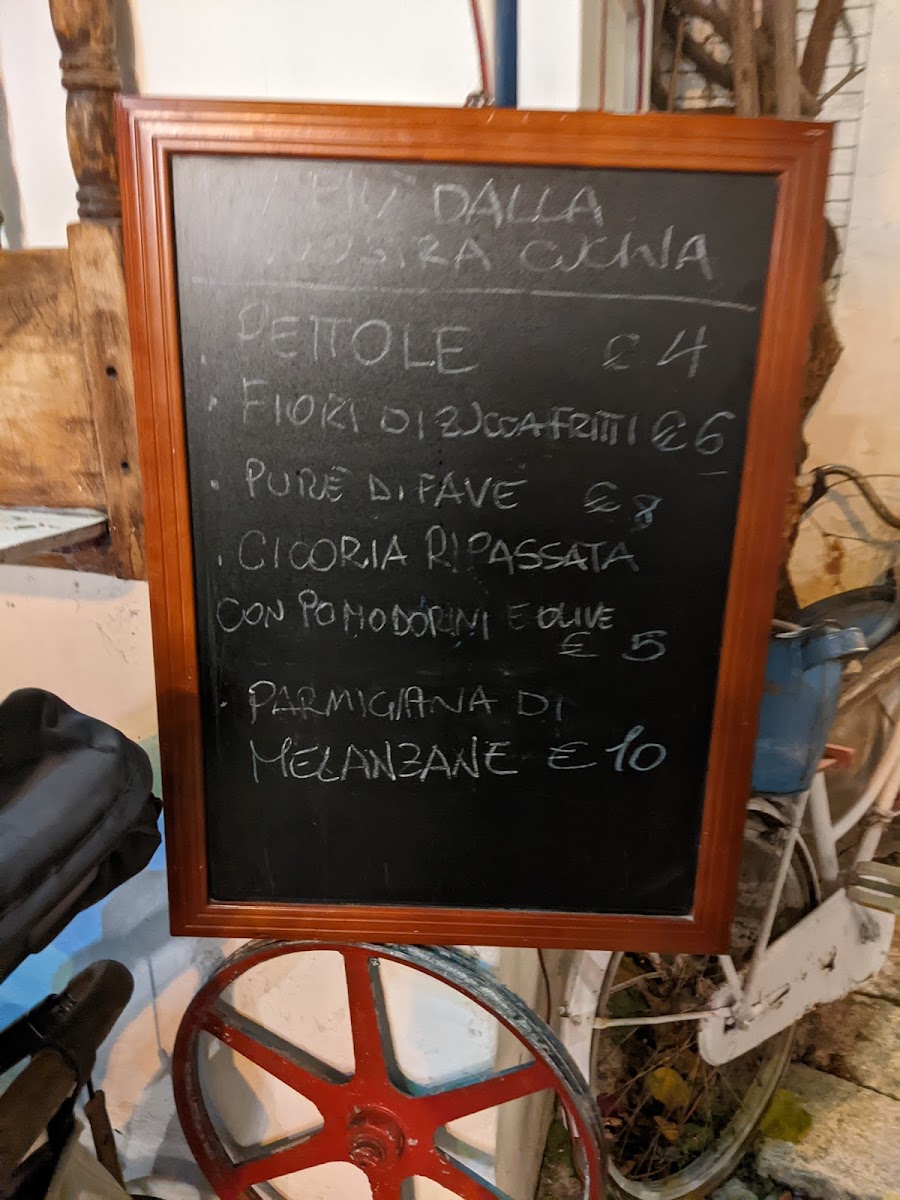 DALLA
NOSTRA CUCINA
PETTOLE € 4
• FIORI DI ZUCCA FRITTI € 6
• PURE DI FAVE € 8
• CICORIA RIPASSATA
CON POMODORINI E OLIVE
€ 5
• PARMIGIANA DI
MELANZANE € 10